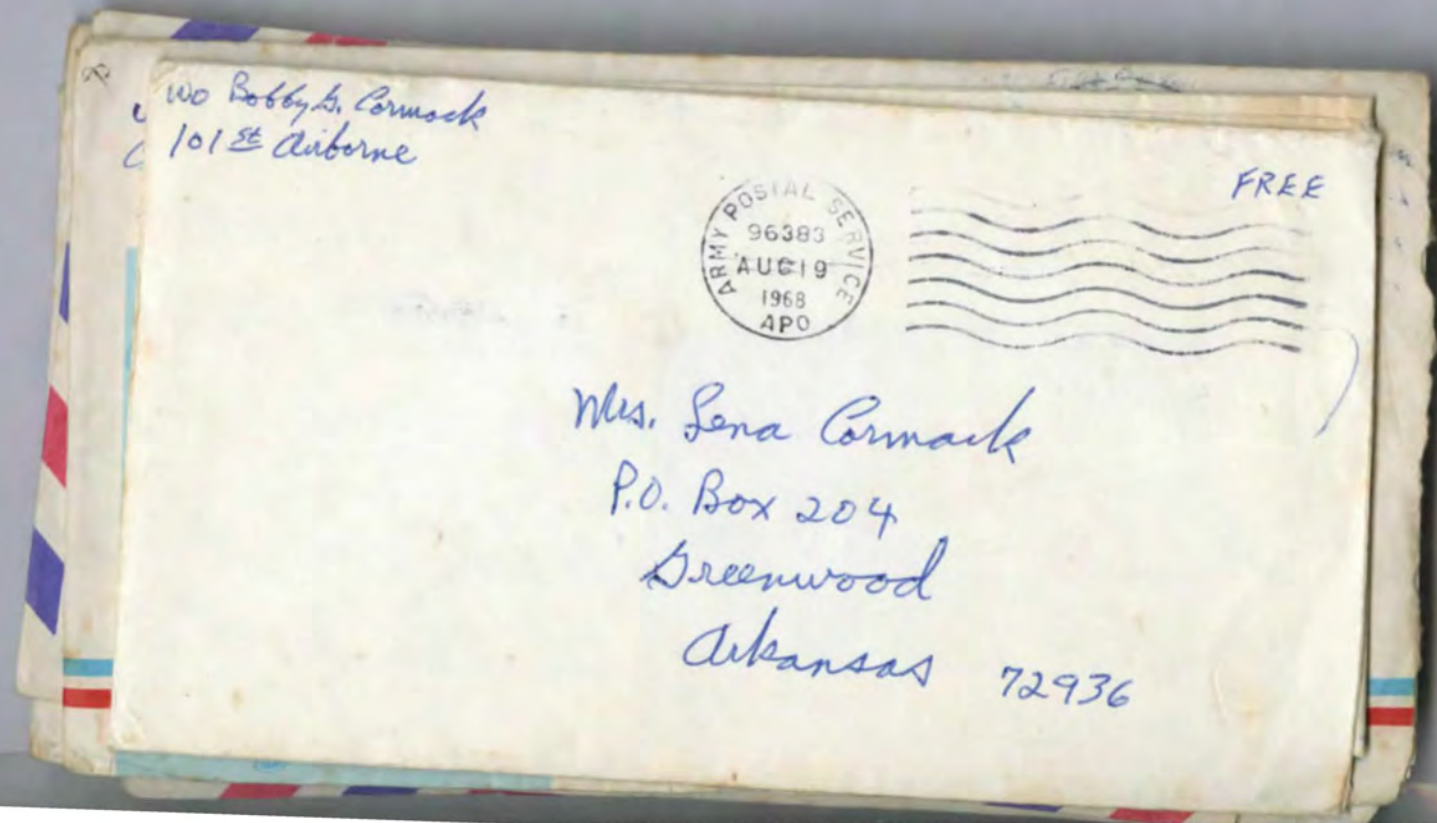 WO Bobby G. Cormack
101st Airborne
FREE
ARMY POSTAL SERVICE
96383
AUG 19
1968
APO
Mrs. Lena Cormack
P.O. Box 204
Greenwood
Arkansas 72936